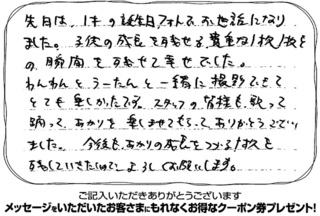 先日は、1才の誕生日フォトでお世話になり
ました。子供の成長を残せる、貴重な1枚1枚
の瞬間を残せて幸せでした。
わんわんとうーたんと一緒に撮影できて
とても楽しかったです。スタッフの皆様も、歌って
踊って、あかりを楽しませてもらってありがとうござい
ました。今後も、あかりの成長をつづる1枚を
残していきたいのでよろしくお願いします。
ご記入いただきありがとうございます
メッセージをいただいたお客さまにもれなくお得なクーポン券プレゼント!